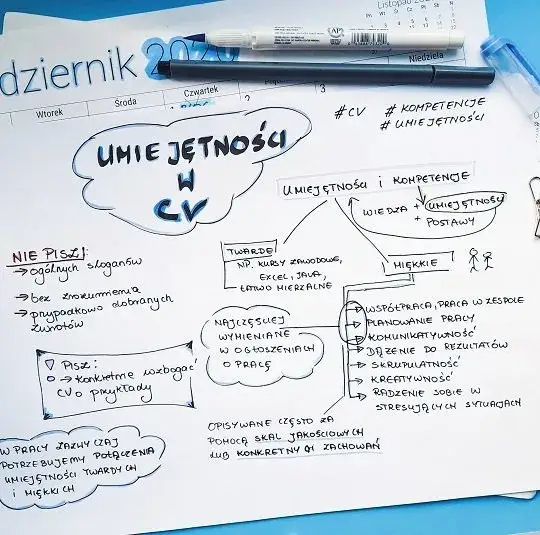 Listopad 20
dziernik 2020
Pn Wt Śr Cz Pt So N
Niedziela
Wtorek Środa Czwartek
2 3
AP
#CV #KOMPETENCJE
#UMIEJĘTNOŚCI
UMIEJĘTNOŚCI
W
CV
UMIEJĘTNOŚCI i KOMPETENCJE
WIEDZA + UMIEJĘTNOŚCI
+ POSTAWY
NIE PISZ!:
→ ogólnych sloganów
→ bez zrozumienia
→ przypadkowo dobranych
zwrotów
TWARDE
NP. KURSY ZAWODOWE,
EXCEL, JAVA,
ŁATWO MIERZALNE
MIĘKKIE
NAJCZĘŚCIEJ
WYMIENIANE
W OGŁOSZENIACH
O PRACĘ
WSPÓŁPRACA, PRACA W ZESPOLE
PLANOWANIE PRACY
KOMUNIKATYWNOŚĆ
DĄŻENIE DO REZULTATÓW
SKRUPULATNOŚĆ
KREATYWNOŚĆ
RADZENIE SOBIE W
STRESUJĄCYCH SYTUACJACH
PISZ:
→ konkretnie wzbogać
CV o przykłady
OPISYWANE CZĘSTO ZA
POMOCĄ SKAL JAKOŚCIOWYCH
LUB KONKRETNYCH ZACHOWAŃ
W PRACY ZAZWYCZAJ
POTRZEBUJEMY POŁĄCZENIA
UMIEJĘTNOŚCI TWARDYCH
i MIĘKKICH